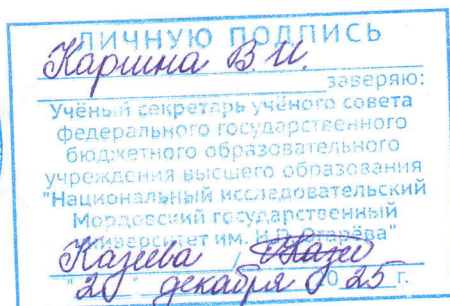 ЛИЧНУЮ ПОДПИСЬ
Каргина В.И.
заверяю:
Учёный секретарь учёного совета
федерального государственного
бюджетного образовательного
учреждения высшего образования
"Национальный исследовательский
Мордовский государственный
университет им. Н.П. Огарёва"
Казеева /
"20" декабря 2025 г.